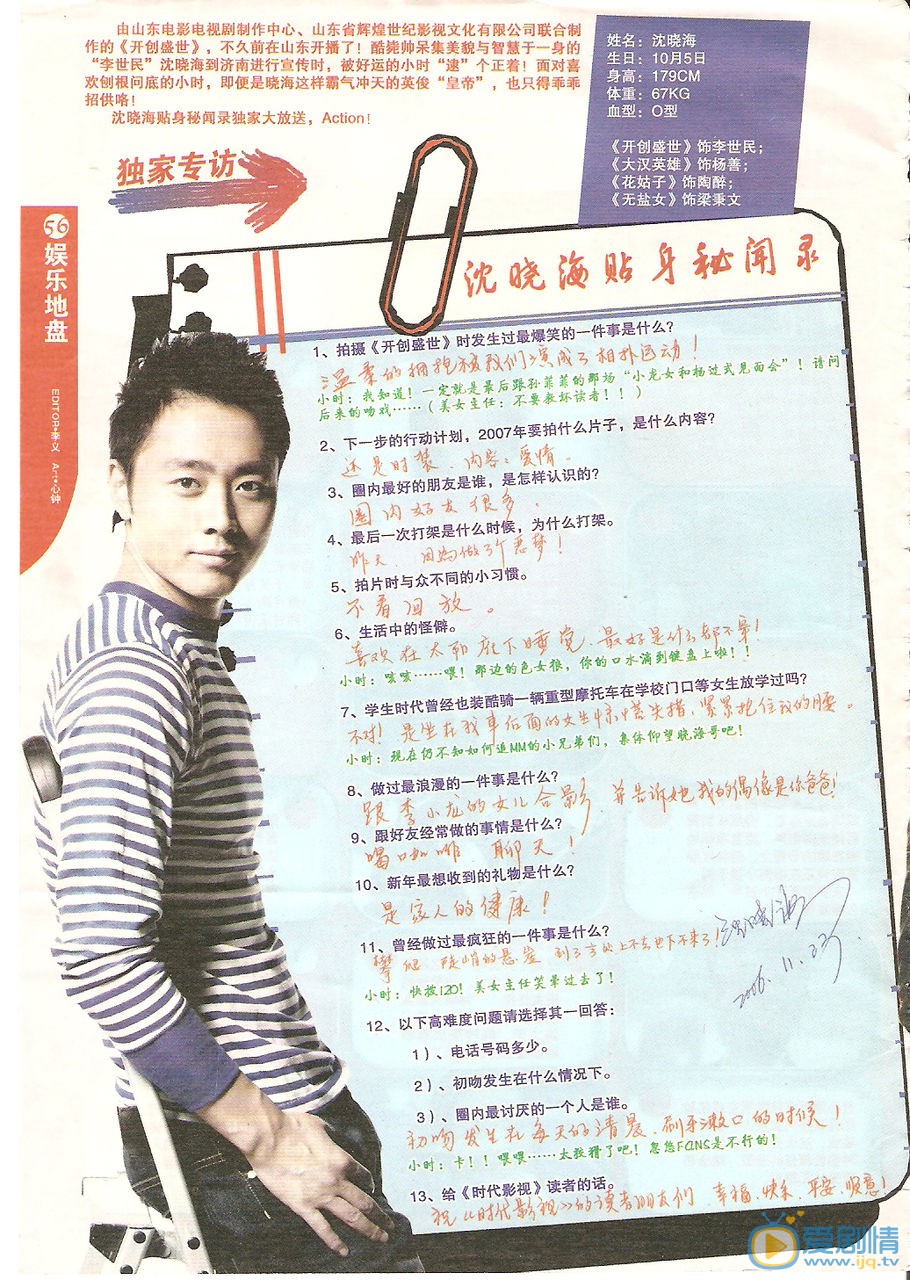 由山东电影电视剧制作中心、山东省辉煌世纪影视文化有限公司联合制
作的《开创盛世》，不久前在山东开播了！酷毙帅呆集美貌与智慧于一身的
“李世民”沈晓海到济南进行宣传时，被好运的小时“逮”个正着！面对喜
欢刨根问底的小时，即便是晓海这样霸气冲天的英俊“皇帝”，也只得乖乖
招供咯！
沈晓海贴身秘闻录独家大放送，Action！
姓名：沈晓海
生日：10月5日
身高：179CM
体重：67KG
血型：O型
《开创盛世》饰李世民；
《大汉英雄》饰杨善；
《花姑子》饰陶醉；
《无盐女》饰梁秉文
独家专访
56
娱乐地盘
EDITOR•李义 Art•心钟
沈晓海贴身秘闻录
1、拍摄《开创盛世》时发生过最爆笑的一件事是什么？
温柔的拥抱被我们演成了相扑运动！
小时：我知道！一定就是最后跟孙菲菲的那场“小龙女和杨过式见面会”！请问
后来的吻戏……（美女主任：不要教坏读者！！）
2、下一步的行动计划，2007年要拍什么片子，是什么内容？
还是时装、内容：爱情。
3、圈内最好的朋友是谁，是怎样认识的？
圈内好友很多。
4、最后一次打架是什么时候，为什么打架。
昨天、因为做了个恶梦！
5、拍片时与众不同的小习惯。
不看回放。
6、生活中的怪僻。
喜欢在太阳底下睡觉、最好是什么都不穿！
小时：咳咳……喂！那边的色女狼，你的口水滴到键盘上啦！！
7、学生时代曾经也装酷骑一辆重型摩托车在学校门口等女生放学过吗？
不对！是坐在我车后面的女生惊慌失措、紧紧抱住我的腰。
小时：现在仍不知如何追MM的小兄弟们，集体仰望晓海哥吧！
8、做过最浪漫的一件事是什么？
跟李小龙的女儿合影，并告诉她我的偶像是你爸爸！
9、跟好友经常做的事情是什么？
喝咖啡、聊天！
10、新年最想收到的礼物是什么？
是家人的健康！
11、曾经做过最疯狂的一件事是什么？
攀爬陡峭的悬崖 到了高处上不去也下不来了！
小时：快拨120！美女主任笑晕过去了！
沈晓海
2006.11.23
12、以下高难度问题请选择其一回答：
1）、电话号码多少。
2）、初吻发生在什么情况下。
3）、圈内最讨厌的一个人是谁。
初吻发生在每天的清晨、刷牙漱口的时候！
小时：卡！！喂喂……太狡猾了吧！忽悠FANS是不行的！
13、给《时代影视》读者的话。
祝《时代影视》的读者朋友们 幸福、快乐、平安、顺意！
爱剧情
www.ijq.tv